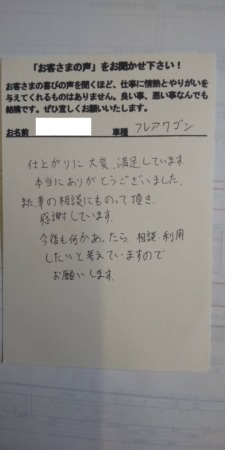 「お客さまの声」をお聞かせ下さい!
お客さまの喜びの声を聞くほど、仕事に情熱とやりがいを
与えてくれるものはありません。良い事、悪い事なんでも
結構です。ぜひ宜しくお願いいたします。
お名前 車種 フレアワゴン
仕上がりに大変、満足しています
本当にありがとうございました。
また、車の相談にものって頂き
感謝しています。
今後も何かあったら、相談、利用
したいと考えていますので
お願いします。